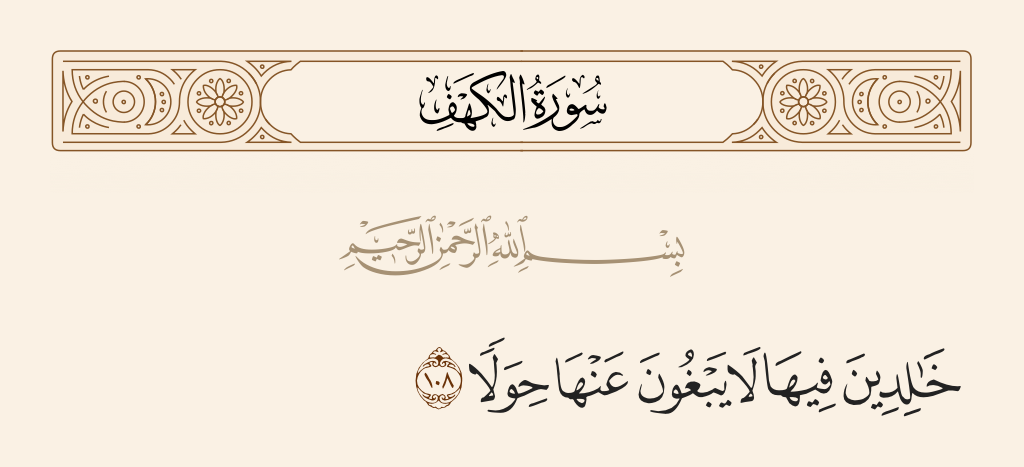 سُورَةُ الكَهْفِ
بِسْمِ ٱللَّهِ ٱلرَّحْمَٰنِ ٱلرَّحِيمِ
خَٰلِدِينَ فِيهَا لَا يَبْغُونَ عَنْهَا حِوَلًا ١٠٨